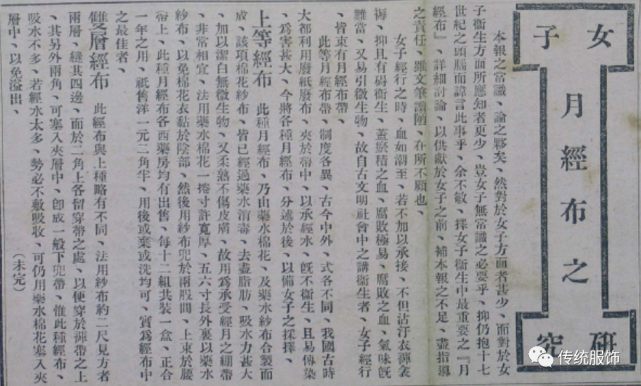 女子
月經布之
研究
本報之常識、論之夥矣、然對於女子方面者甚少、而對於女
子衞生方面所應知者更少、豈女子無常識之必要乎、抑仍抱十七
世紀之頭腦而諱言此事乎、余不敏、擇女子衞生中最重要之『月
經布』、詳細討論、以供獻於女子之前、補本報之不足、盡指導
之責任、雖文筆譾陋、在所不顧也、
女子經行之時、血如溺至、若不加以承接、不但沾汙衣褲衾
褥、抑且有碍衞生、蓋淤積之血、腐敗極易、腐敗之血、氣味旣
難當、又易引微生物、故自古文明社會中之講衞生者、女子經行
皆束有月經布帶、
此等月經布帶、制度各異、古今中外、式各不同、我國古時
大都利用廢紙廢布、夾於帶中、以承經水、旣不衞生、且易傳染
、爲害甚大、今將各種月經布、分述於後、以備女子之採擇、
上等經布　此種月經布、乃由藥水棉花、及藥水紗布合製而
成、該項棉花紗布、皆已經過藥水消毒、去盡脂肪、吸水力甚大
、加以潔白無微生物、又柔熟不傷皮膚、故用爲承受經月之綳帶
、非常相宜、法用藥水棉花一捲寸許寬厚、五六寸長外裹以藥水
紗布、以免棉花衣黏於陰部、然後用紗布兜於兩股間、上束於腰
帶上、此種月經布各西藥房均有出售、每十二組共裝一盒、正合
一年之用、祇售洋一元二角半、用後或棄或洗均可、實爲經布中
之最佳者、
雙層經布　此經布與上種略有不同、法用紗布約二尺見方者
兩層、縫其四邊、而於二角上各留穿帶之處、以便穿於褲帶之上
、其另外兩角、可塞入夾層中、卽成一般下兜帶、惟此種經布、
吸水不多、若經水太多、勢必不敷吸收、可仍用藥水棉花塞入夾
層中、以免溢出、
（未完）
传统服饰